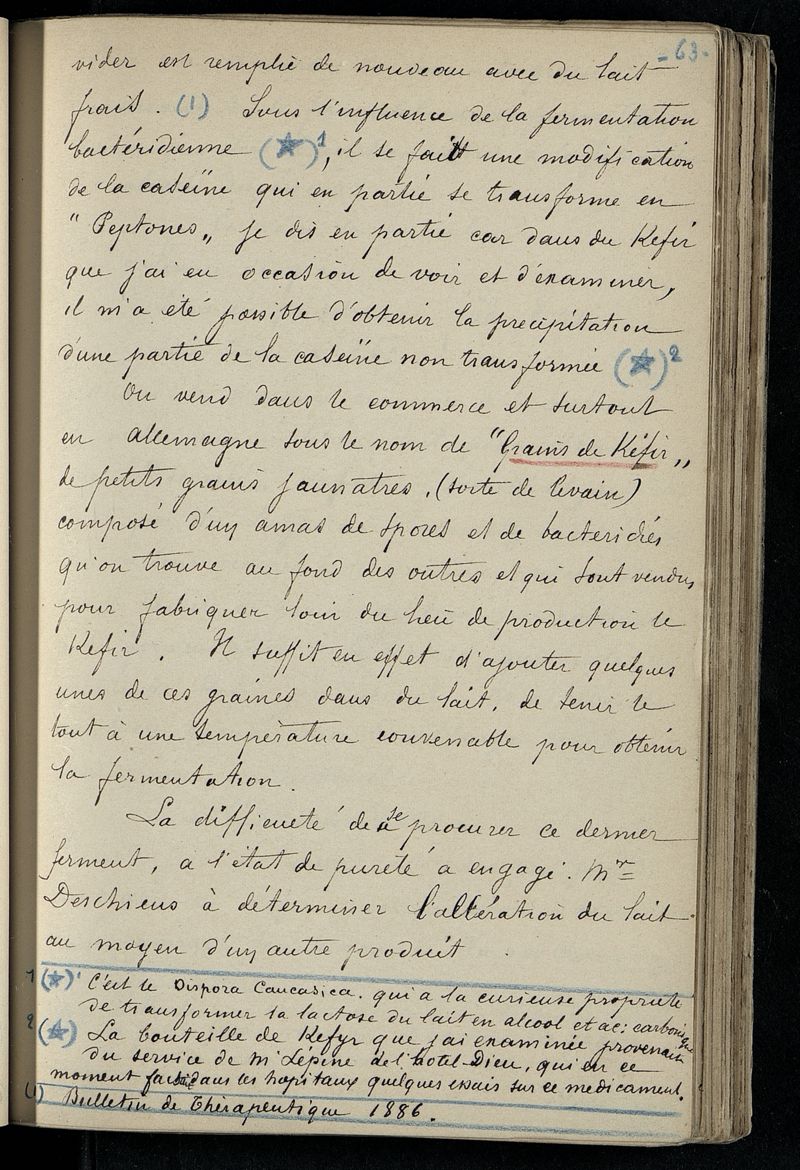 - 63 -
vider est remplie de nouveau avec du lait
frais. (1) Sous l'influence de la fermentation
bactéridienne (★)1, il se fait une modification
de la caseïne qui en partie se transforme en
"Peptones„ je dis en partie car dans du Kefir
que j'ai eu occasion de voir et d'examiner,
il m'a été possible d'obtenir la precipitation
d'une partie de la caseïne non transformée (★)2
On vend dans le commerce et surtout
en Allemagne sous le nom de "Grains de Kéfir„
de petits grains jaunatres, (sorte de levain)
composé d'un amas de spores et de bacteridies
qu'on trouve au fond des outres et qui sont vendus
pour fabriquer loin du lieu de production le
Kefir. Il suffit en effet d'ajouter quelques
unes de ces graines dans du lait, de tenir le
tout à une température convenable pour obtenir
la fermentation.
La difficueté de se procurer ce dernier
ferment, a l'état de pureté a engagé. Mr
Deschiens à déterminer l'altération du lait
au moyen d'un autre produit.
1 (★)1 C'est le Dispora Caucasica. qui a la curieuse propriete
de transformer la lactose du lait en alcool et ac: carbonique
2 (★) La bouteille de Kefyr que j'ai examinée provenait
du service de Mr Lépine de l'hotel-Dieu, qui en ce
moment fait dans les hopitaux quelques essais sur ce medicament.
(1) Bulletin de Thérapeutique 1886.